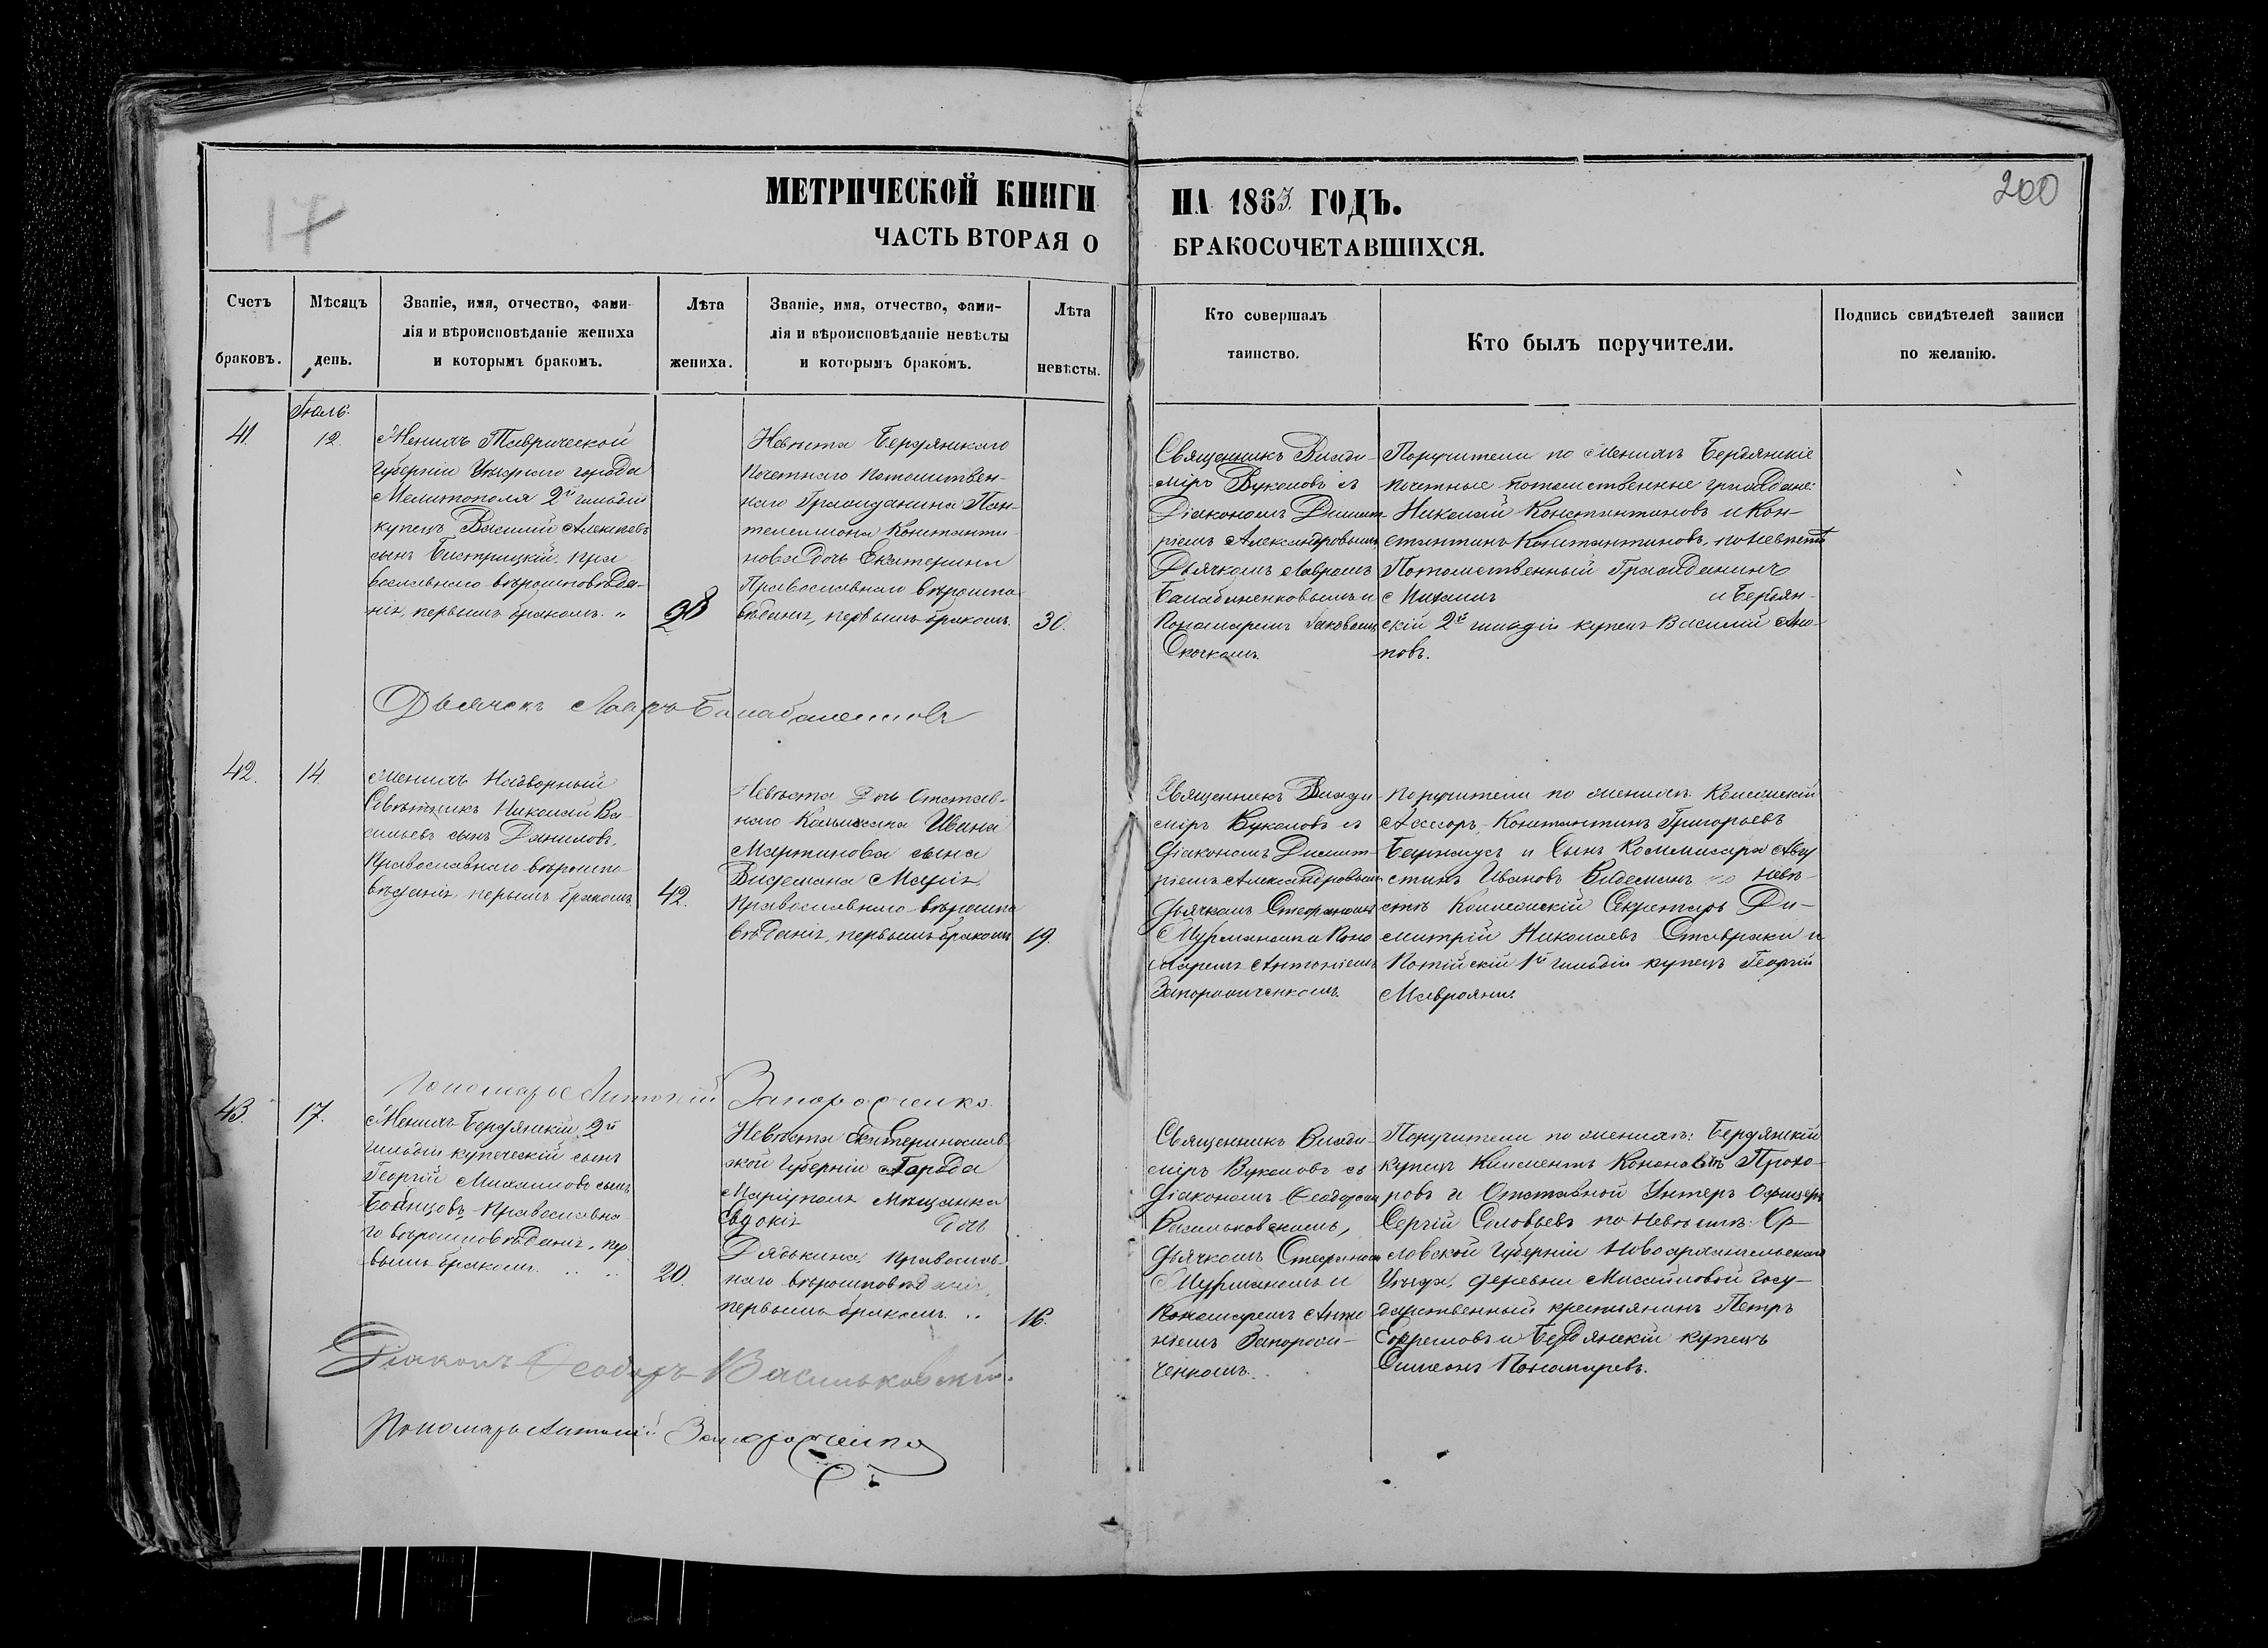 17
200
МЕТРИЧЕСКОЙ КНИГИ НА 1863 ГОДЪ.
ЧАСТЬ ВТОРАЯ О БРАКОСОЧЕТАВШИХСЯ.
Счетъ браковъ.
Мѣсяцъ день.
Званіе, имя, отчество, фами-
лія и вѣроисповѣданіе жениха
и которымъ бракомъ.
Лѣта жениха.
Званіе, имя, отчество, фами-
лія и вѣроисповѣданіе невѣсты
и которымъ бракомъ.
Лѣта невѣсты.
Кто совершалъ
таинство.
Кто былъ поручители.
Подпись свидѣтелей записи
по желанію.
41.
Іюль.
12.
Женихъ Таврической
Губерніи Уѣзднаго города
Мелитополя 2й гильдіи
купецъ Василій Алексѣевъ
сынъ Быстрицкій. Пра
вославнаго вѣроисповѣда-
нія, первымъ бракомъ. "
28
Невѣста Бердянскаго
Почетнаго Потомствен-
наго Гражданина Пан-
телеимона Константи
нова дочь Екатерина
Православнаго вѣроиспо
вѣданія, первымъ бракомъ.
30.
Священникъ Влади-
міръ Вуколовъ съ
Діакономъ Димит-
ріемъ Александровымъ,
Дьячкомъ Лавромъ
Балабаненковымъ и
Пономаремъ Іаковомъ
Скочкомъ.
Поручители по женихѣ Бердянскіе
почетные потомственные граждане:
Николай Константиновъ и Кон-
стантинъ Константиновъ, по невѣстѣ
Потомственный Гражданинъ
Михаилъ и Бердян-
скій 2й гильдіи купецъ Василій Ано-
повъ.
Дьячокъ Лавръ Балабаненковъ
42.
14.
Женихъ Надворный
Совѣтникъ Николай Ва
сильевъ сынъ Даниловъ,
Православнаго вѣроиспо
вѣданія, первымъ бракомъ.
42.
Невѣста дочь Отстав-
наго Капитана Ивана
Мартинова сына
Видемана Марія,
Православнаго вѣроиспо
вѣданія, первымъ бракомъ
19.
Священникъ Влади
міръ Вуколовъ съ
Діакономъ Димит-
ріемъ Александровымъ
Дьячкомъ Стефаномъ
Мурманомъ и Поно
маремъ Антоніемъ
Запорожченкомъ.
Поручители по женихѣ: Коллежскій
Асесоръ Константинъ Григорьевъ
и Сынъ Коммисара Авгу
стинъ Ивановъ Видеманъ по невѣ-
стѣ Коллежскій Секретарь Ди-
митрій Николаевъ Ставраки и
Потійскій 1й гильдіи купецъ Георгій
Маврояни.
Пономарь Антоній Запорожченко.
43.
17.
Женихъ Бердянскій 2й
гильдіи купеческій сынъ
Георгій Михаиловъ сынъ
Бабенцовъ Православна
го вѣроисповѣданія, пер
вымъ бракомъ. .. ..
20.
Невѣста Екатеринослав
ской Губерніи Города
Маріуполя Мѣщанка
Евдокія дочь
Дядькина, Православ-
наго вѣроисповѣданія,
первымъ бракомъ. ..
16.
Священникъ Влади-
міръ Вуколовъ съ
Діакономъ Ѳеодоромъ
Васильковскимъ,
Дьячкомъ Стефаномъ
Мурманомъ и
Пономаремъ Анто
ніемъ Запорож-
ченкомъ.
Поручители по женихѣ: Бердянскій
купецъ Климентъ Кононовъ Прохо-
ровъ и Отставной Унтеръ Офицеръ
Сергій Соловьевъ по Невѣстѣ: Ор-
ловской Губерніи Новоархангельскаго
Уѣзда, деревни Мисайловой Госу-
дарственный крестьянинъ Петръ
Ефремовъ и Бердянскій купецъ
Симеонъ Пономаревъ.
Діаконъ Ѳеодоръ Васильковскій.
Пономарь Антоній Запорожченко